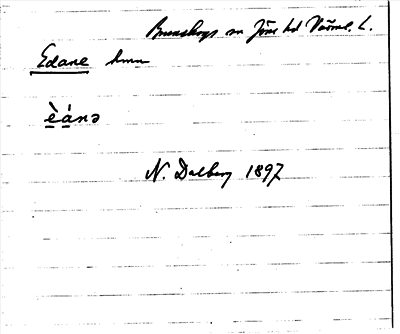 Brunskogs sn Jösse hd Värml. L.
Edane hmn
è̱á̱nə
N. Dalberg 1897